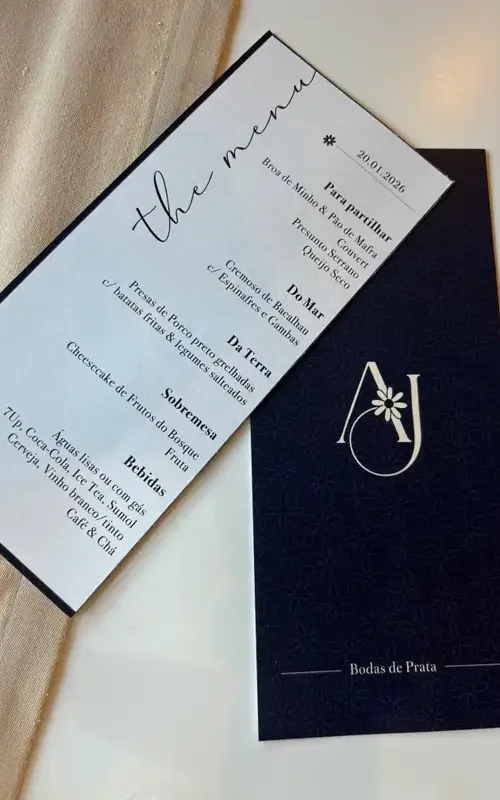 the menu
20.01.2026
Para partilhar
Broa de Minho & Pão de Mafra
Couvert
Presunto Serrano
Queijo Seco
Do Mar
Cremoso de Bacalhau
c/ Espinafres e Gambas
Da Terra
Presas de Porco preto grelhadas
c/ batatas fritas & legumes salteados
Sobremesa
Cheesecake de Frutos do Bosque
Fruta
Bebidas
Águas lisas ou com gás
7Up, Coca-Cola, Ice Tea, Sumol
Cerveja, Vinho branco/tinto
Café & Chá
AJ
Bodas de Prata